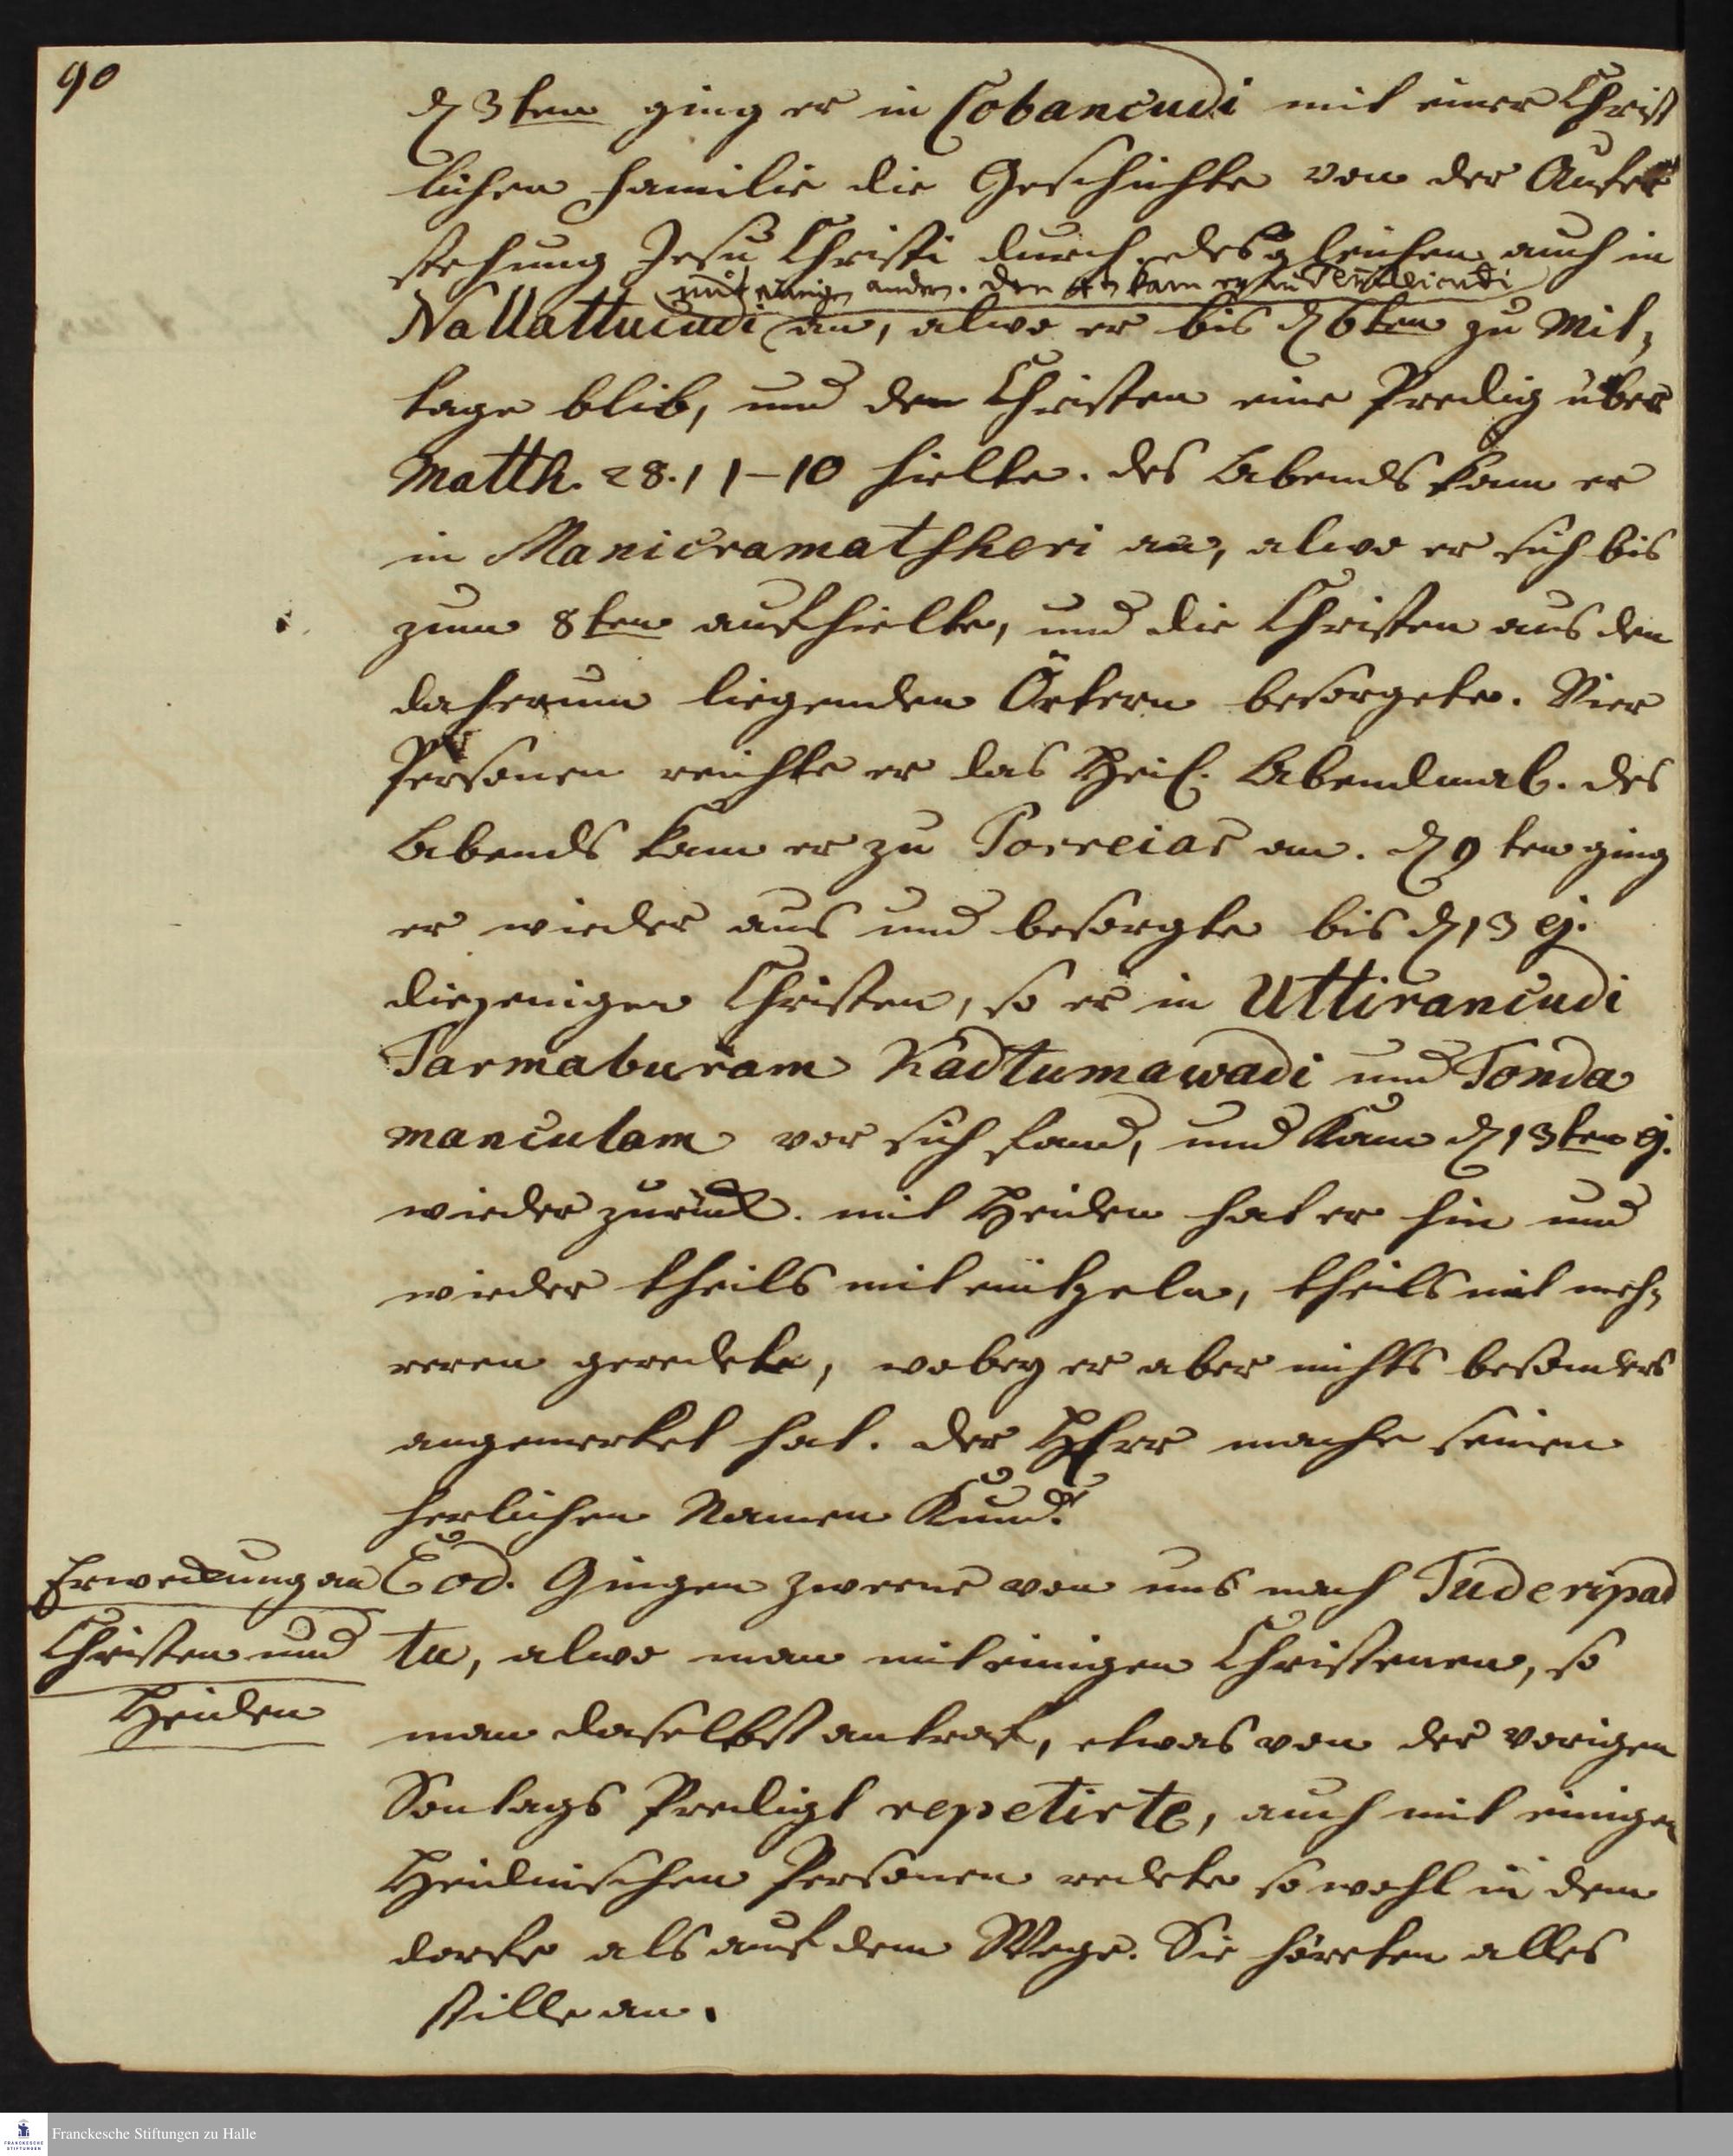 90
d 3ten ging er in Cobancudi mit einer Christ
lichen Familie die Geschichte von der Aufer
stehung Jesu Christi durch. desgleichen auch in
mit einigen andern. den 4n kam er in
Nallattucudi an, alwo er bis d 6ten zu Mit,
tage blib, und den Christen eine Predig über
Matth. 28. 1 1-10 hielte. des Abends kam er
in Manicramatsheri an, alwo er sich bis
zum 8ten aufhielte, und die Christen aus den
daherum liegenden Örtern besorgete. Vier
Personen reichte er das Heil. Abendmal. des
Abends kam er zu Porreiar an. d 9ten ging
er wieder aus und besorgte bis d 13 ej.
diejenigen Christen, so er in Uttirancudi
Tarmaburam Kadtumawadi und Tonda
manculam vor sich fand, und kam d 13ten ej.
wieder zurück. mit Heiden hat er hin und
wieder theils mit eintzeln, theils mit meh,
reren geredete, wobey er aber nichts besonders
angemerket hat. der HErr mache seinen
herlichen Namen Kund!
Erweckung an
Christen und
Heiden
Eod. Gingen zweene von uns nach Tuderipad
tu, alwo man mit einigen Christenen, so
man daselbst antraf, etwas von der vorigen
Sontags Predigt repetirte, auch mit einigen
Heidnischen Personen redete so wohl in dem
dorfe als auf dem Wege. Sie höreten alles
stille an.
Franckesche Stiftungen zu Halle
FRANCKESCHE
STIFTUNGEN